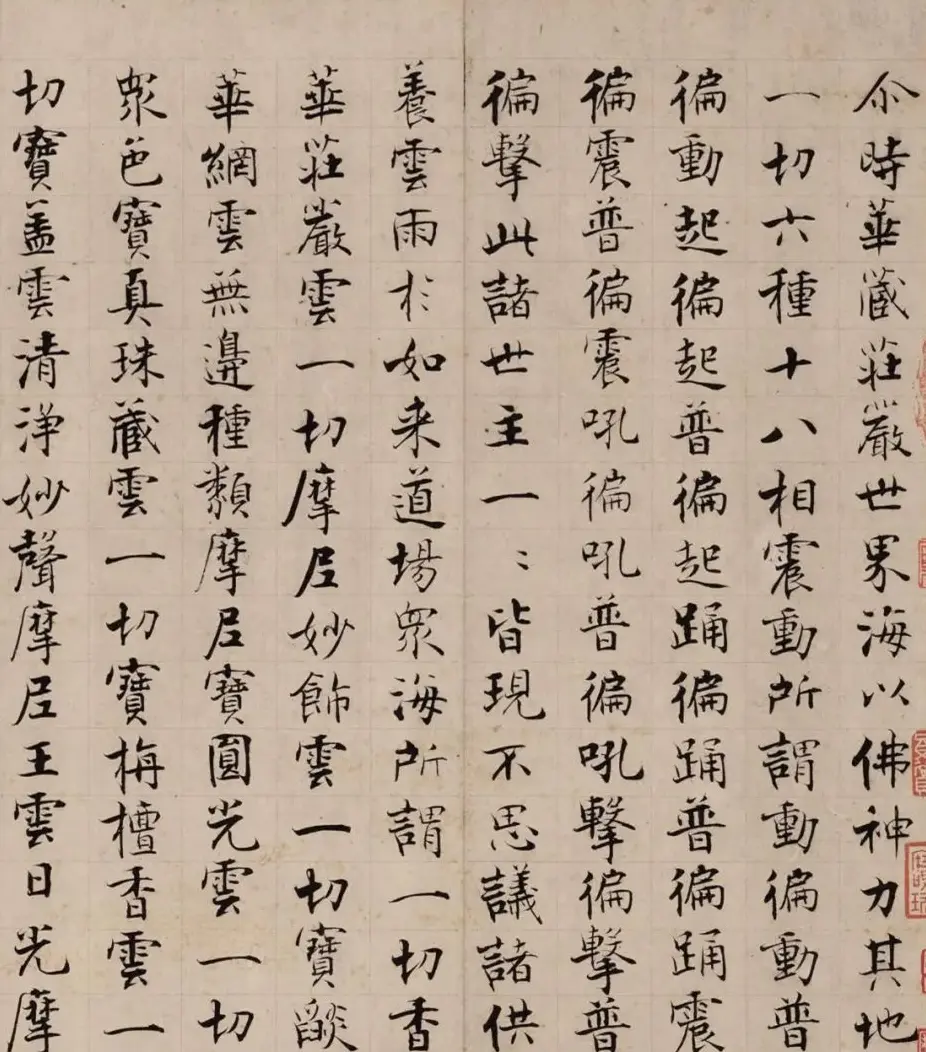 尒時華蔵莊嚴世界海以佛神力其地
一切六種十八相震動所謂動徧動普
徧動起徧起普徧起踊徧踊普徧踊震
徧震普徧震吼徧吼普徧吼擊徧擊普
徧擊此諸世主一〻皆現不思議諸供
養雲雨於如来道場衆海所謂一切香
華莊嚴雲一切摩尼妙飾雲一切寶燄
華網雲無邊種類摩尼寶圓光雲一切
衆色寶真珠蔵雲一切寶栴檀香雲一
切寶盖雲清淨妙聲摩尼王雲日光摩